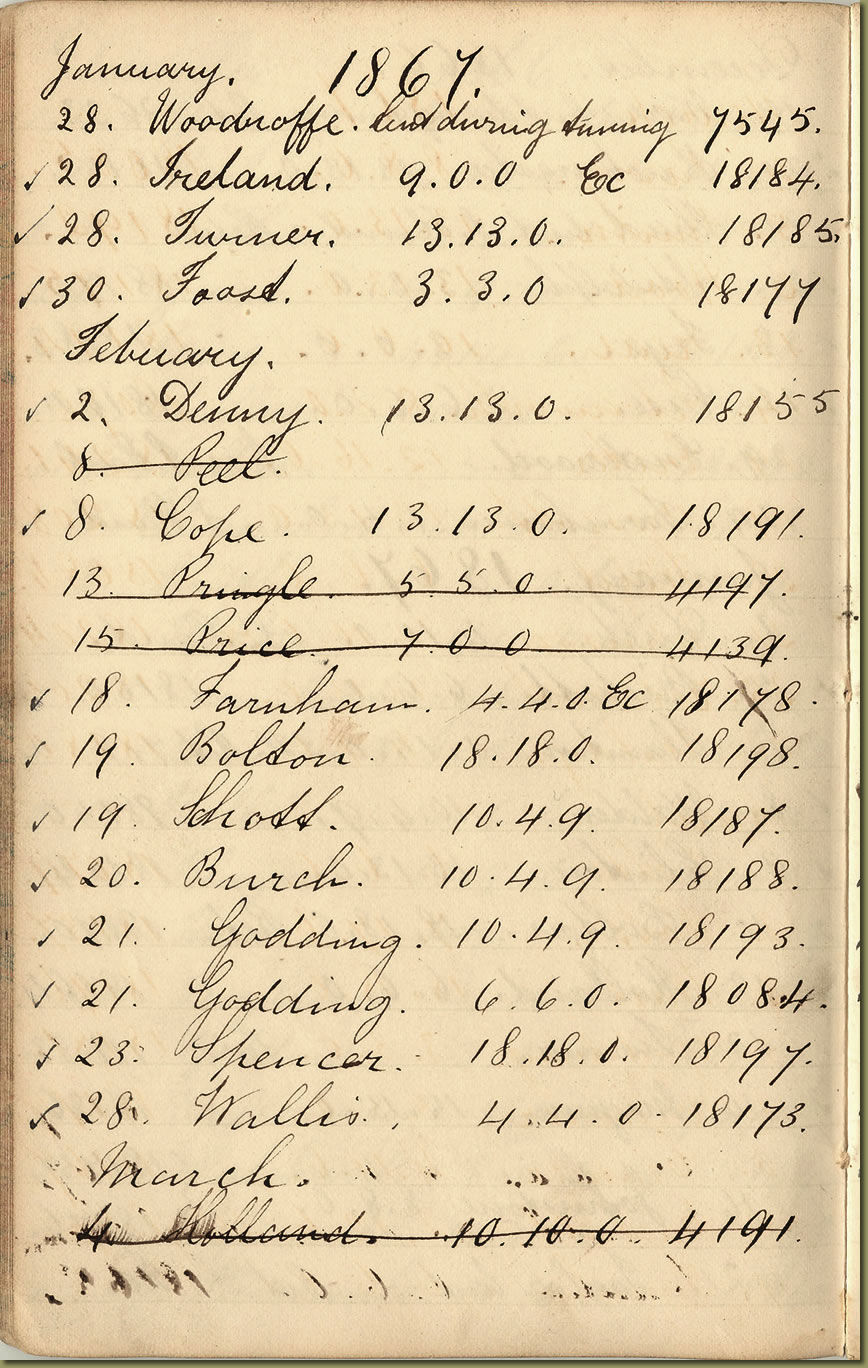 January. 1867.
28. Woodroffe. lent during tuning 7545.
✓ 28. Ireland. 9.0.0 Ec 18184.
✓ 28. Turner. 13.13.0. 18185.
✓ 30. Foost. 3.3.0 18177
Febuary.
✓ 2. Denny. 13.13.0. 18155
8. Peel.
✓ 8. Cope. 13.13.0. 18191.
13. Pringle. 5.5.0. 4197.
15. Price. 7.0.0 4139.
✓ 18. Farnham. 4.4.0. Ec 18178.
✓ 19. Bolton. 18.18.0. 18198.
✓ 19. Schott. 10.4.9. 18187.
✓ 20. Burch. 10.4.9. 18188.
✓ 21. Godding. 10.4.9. 18193.
✓ 21. Godding. 6.6.0. 18084.
✓ 23. Spencer. 18.18.0. 18197.
✓ 28. Wallis. 4.4.0. 18173.
March.
4. Holland. 10.10.0. 4191.